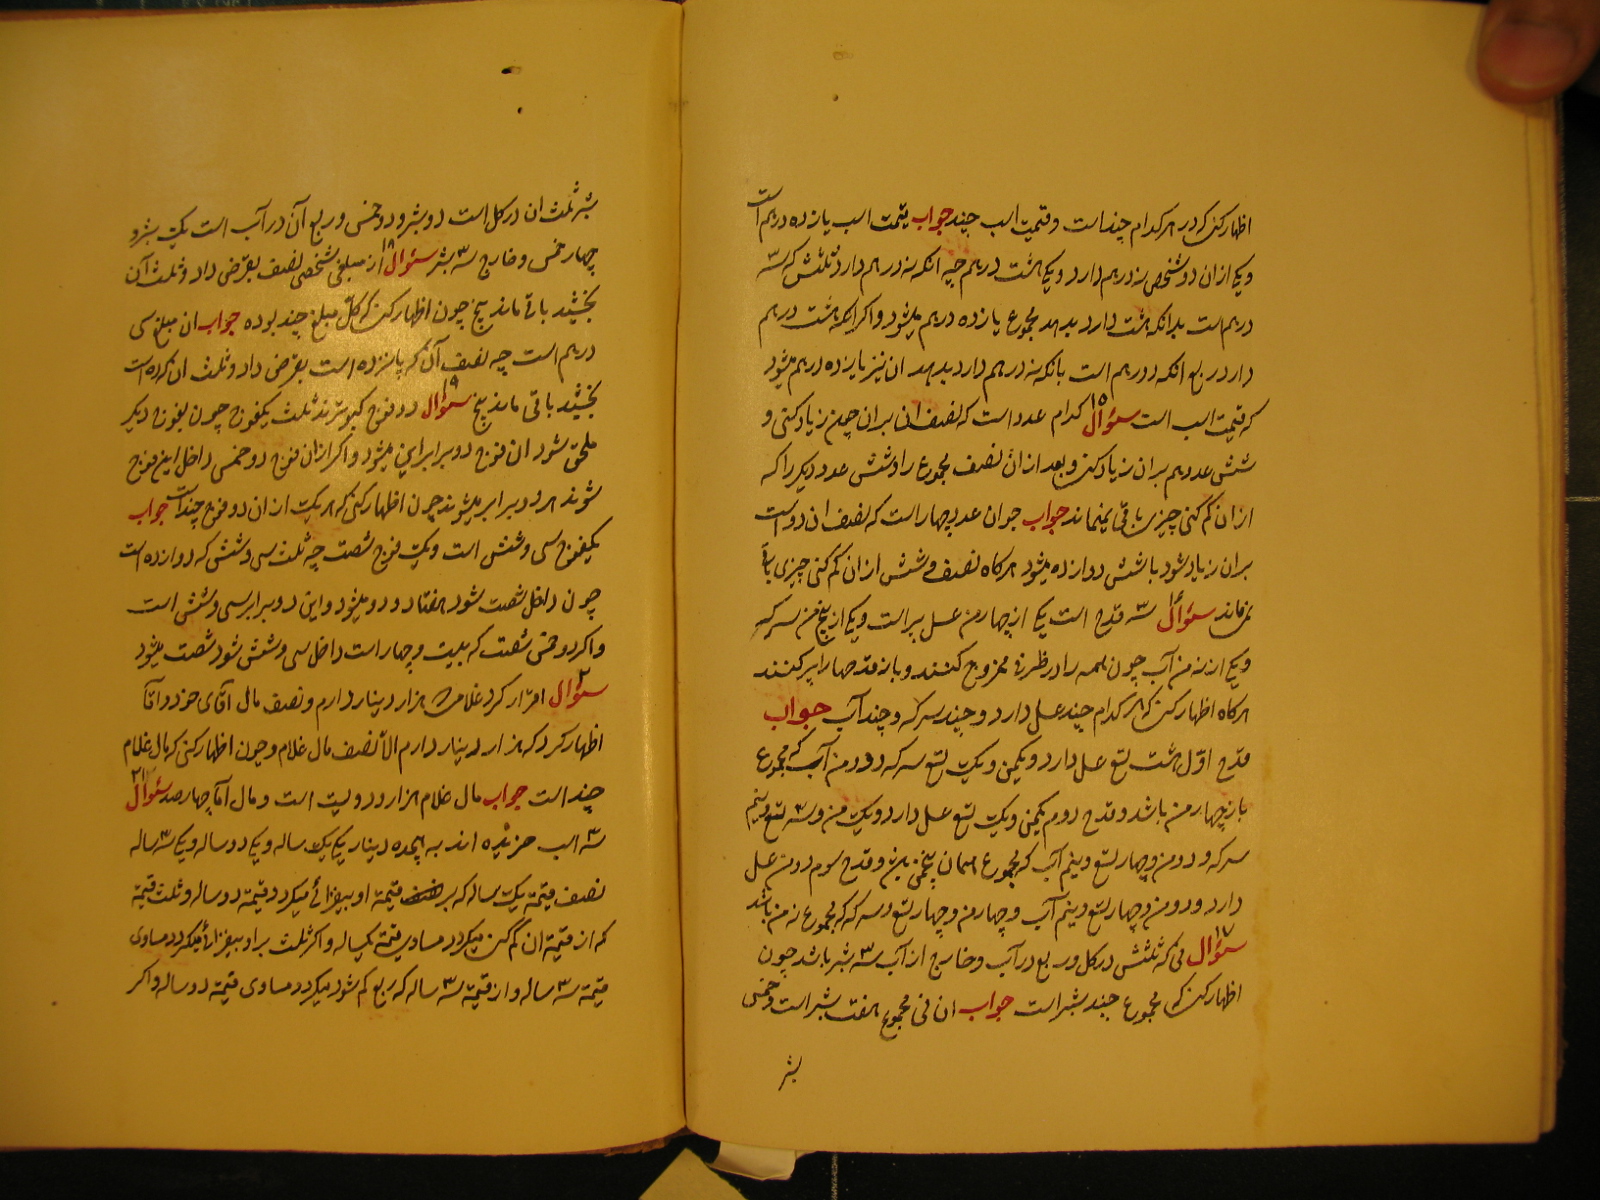 اظهار کن که در هر کدام چند است و قیمت اسب چند جواب قیمت اسب یازده درهم است
و یکی از ان دو شخص نه درهم دارد و یکی هشت درهم چه انکه نه درهم دارد ثلثش که سه
درهم است بدانکه هشت دارد بدهد مجموع یازده درهم میشود و اگر انکه هشت درهم
دارد ربع انکه دو درهم است بانکه نه درهم دارد بدهد ان نیز یازده درهم میشود
که قیمت اسب است سؤال ۱۵ کدام عدد است که نصف ان بران چون زیاد کنی و
شش عدد هم بران زیاد کنی و بعد از ان نصف مجموع را و شش عدد دیگر را که
از ان کم کنی چیزی باقی نمیماند جواب جواب ان عدد چهار است که نصف ان دو است
بران زیاد شود با شش دوازده میشود هرگاه نصف و شش از ان کم کنی چیزی باقی
نمیماند سؤال ۱۶ سه قدح است یکی از چهار من عسل پر است و یکی از پنج من سرکه
و یکی از نه من آب چون همه را در ظرفی ممزوج کنند و باز قدحها را پر کنند
هرگاه اظهار کن که هر کدام چند عسل دارد و چند سرکه و چند آب جواب
قدح اول هشت تسع عسل دارد و یکمن و یک تسع سرکه و دو من آب که مجموع
باز چهار من باشد و قدح دوم یکمن و یک تسع عسل دارد و یک من و سه تسع و نیم
سرکه و دو من و چهار تسع و نیم آب که مجموع همان پنج من و قدح سوم دو من عسل
دارد و دو من و چهار تسع و نیم آب و چهار من و چهار تسع و سرکه که مجموع نه من باشد
سؤال ۱۷ نی که ثلثش در گل و ربع در آب و خارج از آب سه شبر باشد چون
اظهار کن که مجموع چند شبر است جواب ان نی مجموع هفت شبر است و خمس
شبر
شبر ثلث ان در گل است دو شبر و دو خمس و ربع آن در آب است یک شبر و
چهار خمس و خارج سه شبر سؤال ۱۸ از مبلغی شخصی نصف بقرض داد و ثلث آن
بخشید باقی ماند پنج چون اظهار کن که کل مبلغ چند بوده جواب ان مبلغ سی
درهم است چه نصف آن که پانزده است بقرض داد و ثلث ان که ده است
بخشید باقی ماند پنج سؤال ۱۹ دو فوج کبوترند ثلث یکفوج چون بفوج دیگر
ملحق شود ان فوج دو برابر این میشود و اگر از ان فوج دو خمس داخل این فوج
شوند هر دو برابر میشوند چون اظهار کنی که هر یک از ان دو فوج چند است جواب
یکفوج سی و شش است و یک فوج شصت چه ثلث سی و شش که دوازده است
چون داخل شصت شود هفتاد و دو میشود و این دو برابر سی و شش است
و اگر دو خمس شصت که بیست و چهار است داخل سی و شش شود شصت میشود
سؤال ۲۰ اقرار کرد غلامی هزار دینار دارم و نصف مال آقای خود و آقا
اظهار کرد که هزار دینار دارم الا نصف مال غلام و چون اظهار کنی که مال غلام
چند است جواب مال غلام هزار و دویست است و مال آقا چهارصد سؤال ۲۱
سه اسب خریده اند به هجده دینار یکی یک ساله و یکی دو ساله و یکی سه ساله
نصف قیمة یک ساله که بر قیمة او بیفزائی میگردد قیمة دو ساله و ثلث قیمة
که از قیمة ان کم کنی میگردد مساوی قیمة یکساله و اگر ثلث بر او بیفزائی میگردد مساوی
قیمة سه ساله و از قیمة سه ساله که ربع کم شود میگردد مساوی قیمة دو ساله و اگر